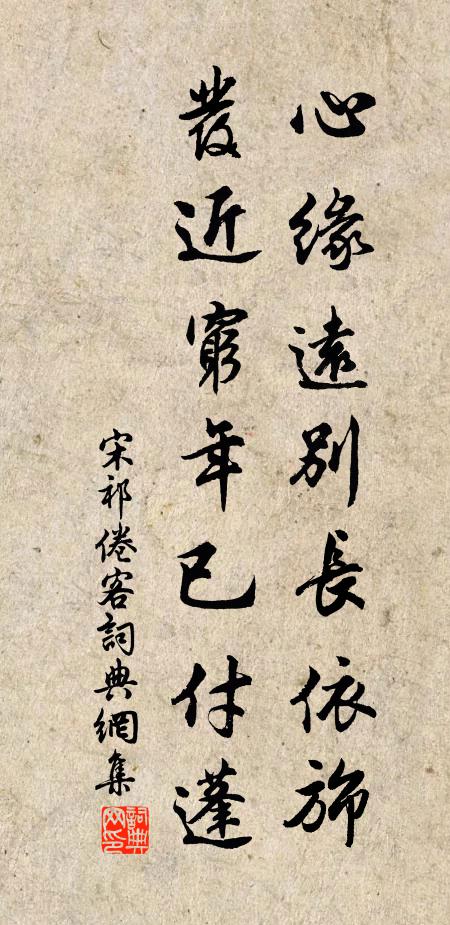 心緣遠別長依旆
發近窮年已付蓬
宋祁倦客詞典網集
詞典
网印